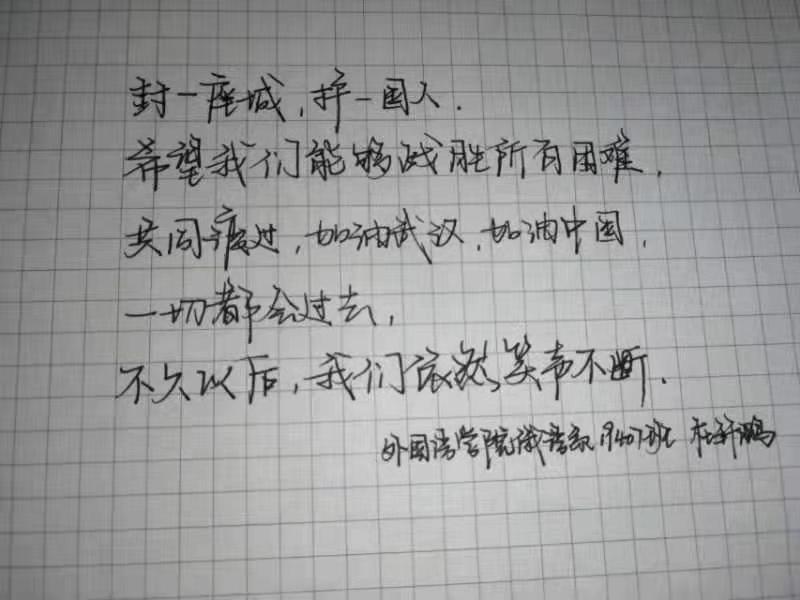 封一座城,护一国人.
希望我们能够战胜所有困难,
共同渡过,加油武汉,加油中国,
一切都会过去,
不久以后,我们依然笑声不断.
外国语学院俄语系1940班 杜